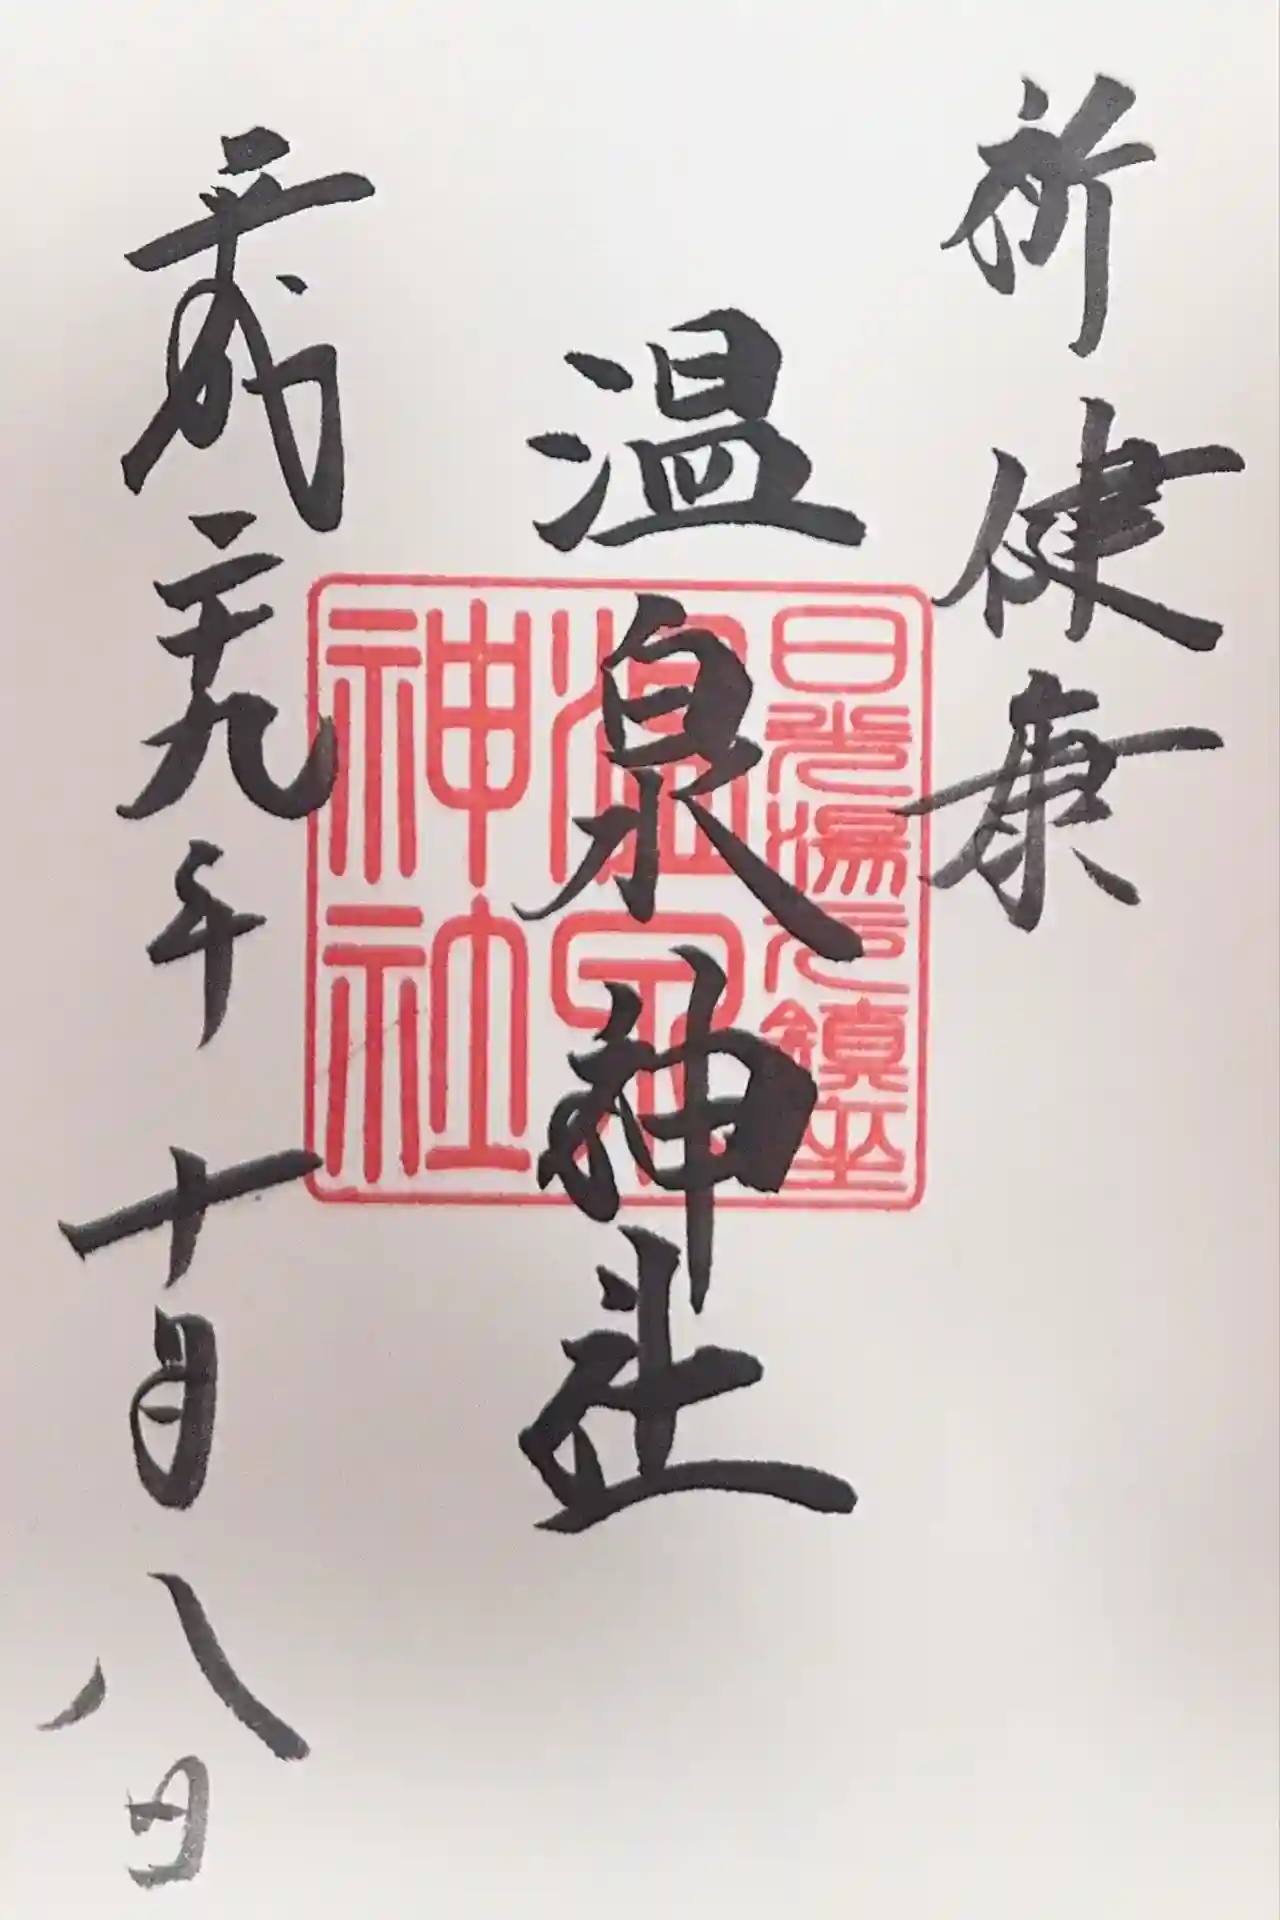 祈健康
温泉神社
平成二十九年十月八日
日光湯元鎮座
温泉
神社